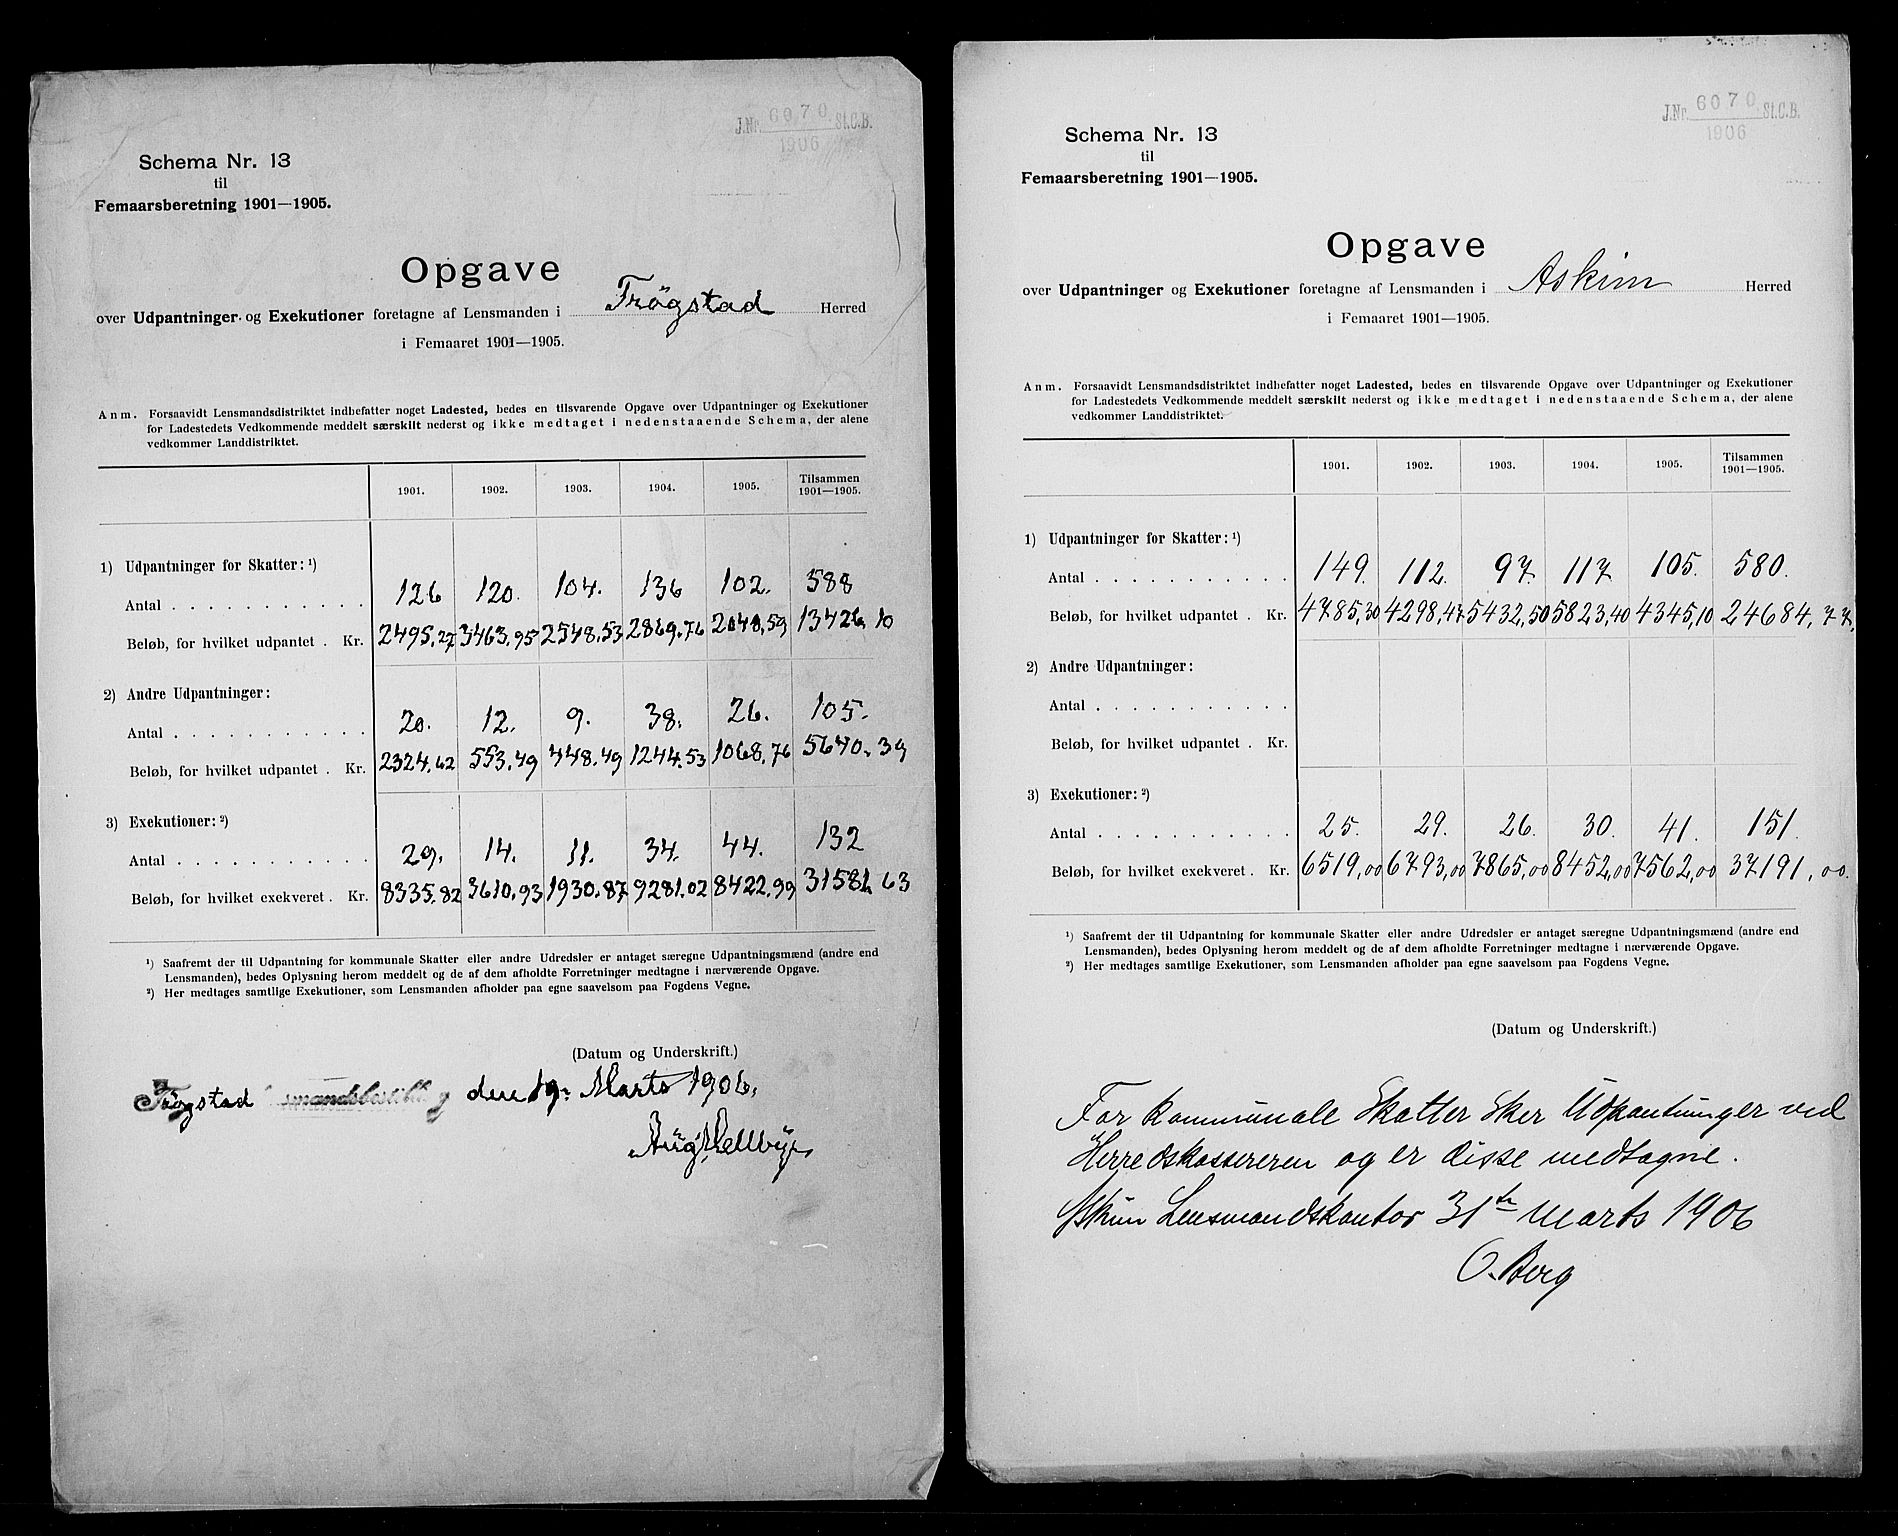 J.Nr. 6070 St.C.B.
1906
Schema Nr. 13
til
Femaarsberetning 1901—1905.
Opgave
over Udpantninger og Exekutioner foretagne af Lensmanden i Trögstad Herred
i Femaaret 1901—1905.
Anm. Forsaavidt Lensmandsdistriktet indbefatter noget Ladested, bedes en tilsvarende Opgave over Udpantninger og Exekutioner
for Ladestedets Vedkommende meddelt særskilt nederst og ikke medtaget i nedenstaaende Schema, der alene
vedkommer Landdistriktet.
1901. 1902. 1903. 1904. 1905. Tilsammen
1901—1905.
1) Udpantninger for Skatter: ¹)
Antal . . . . . . . . . . . . 126 120. 104. 136 102. 588
Beløb, for hvilket udpantet . Kr. 2495.27 3463.95 2548.53 2869.76 2048.59 13426.10
2) Andre Udpantninger:
Antal . . . . . . . . . . . . 20. 12. 9. 38. 26. 105.
Beløb, for hvilket udpantet . Kr. 2324.62 553.49 448.49 1244.53 1068.76 5640.39
3) Exekutioner: ²)
Antal . . . . . . . . . . . . 29. 14. 11. 34. 44. 132
Beløb, for hvilket exekveret . Kr. 8335.82 3610.93 1930.87 9281.02 8422.99 31581.63
¹) Saafremt der til Udpantning for kommunale Skatter eller andre Udredsler er antaget særegne Udpantningsmænd (andre end
Lensmanden), bedes Oplysning herom meddelt og de af dem afholdte Forretninger medtagne i nærværende Opgave.
²) Her medtages samtlige Exekutioner, som Lensmanden afholder paa egne saavelsom paa Fogdens Vegne.
(Datum og Underskrift.)
Trögstad den 19. Marts 1906.
J.Nr. 6070 St.C.B.
1906
Schema Nr. 13
til
Femaarsberetning 1901—1905.
Opgave
over Udpantninger og Exekutioner foretagne af Lensmanden i Askim Herred
i Femaaret 1901—1905.
Anm. Forsaavidt Lensmandsdistriktet indbefatter noget Ladested, bedes en tilsvarende Opgave over Udpantninger og Exekutioner
for Ladestedets Vedkommende meddelt særskilt nederst og ikke medtaget i nedenstaaende Schema, der alene
vedkommer Landdistriktet.
1901. 1902. 1903. 1904. 1905. Tilsammen
1901—1905.
1) Udpantninger for Skatter: ¹)
Antal . . . . . . . . . . . . 149. 112. 97 117 105. 580.
Beløb, for hvilket udpantet . Kr. 4785,30 4298,47 5432,50 5823,40 4345,10 24684,77.
2) Andre Udpantninger:
Antal . . . . . . . . . . . .
Beløb, for hvilket udpantet . Kr.
3) Exekutioner: ²)
Antal . . . . . . . . . . . . 25. 29. 26. 30. 41. 151.
Beløb, for hvilket exekveret . Kr. 6519,00 6793,00 7865,00 8452,00 7562,00 37191,00.
¹) Saafremt der til Udpantning for kommunale Skatter eller andre Udredsler er antaget særegne Udpantningsmænd (andre end
Lensmanden), bedes Oplysning herom meddelt og de af dem afholdte Forretninger medtagne i nærværende Opgave.
²) Her medtages samtlige Exekutioner, som Lensmanden afholder paa egne saavelsom paa Fogdens Vegne.
(Datum og Underskrift.)
For kommunale Skatter sker Udpantninger ved
Herredskassereren og er disse medtagne.
Askim Lensmandskontor 31te Marts 1906
O. Berg